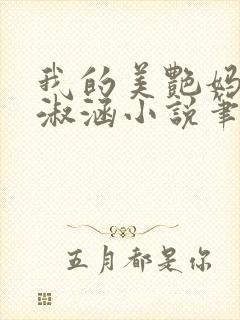 我的美艷妈
淑涵小説筆
五月都是你